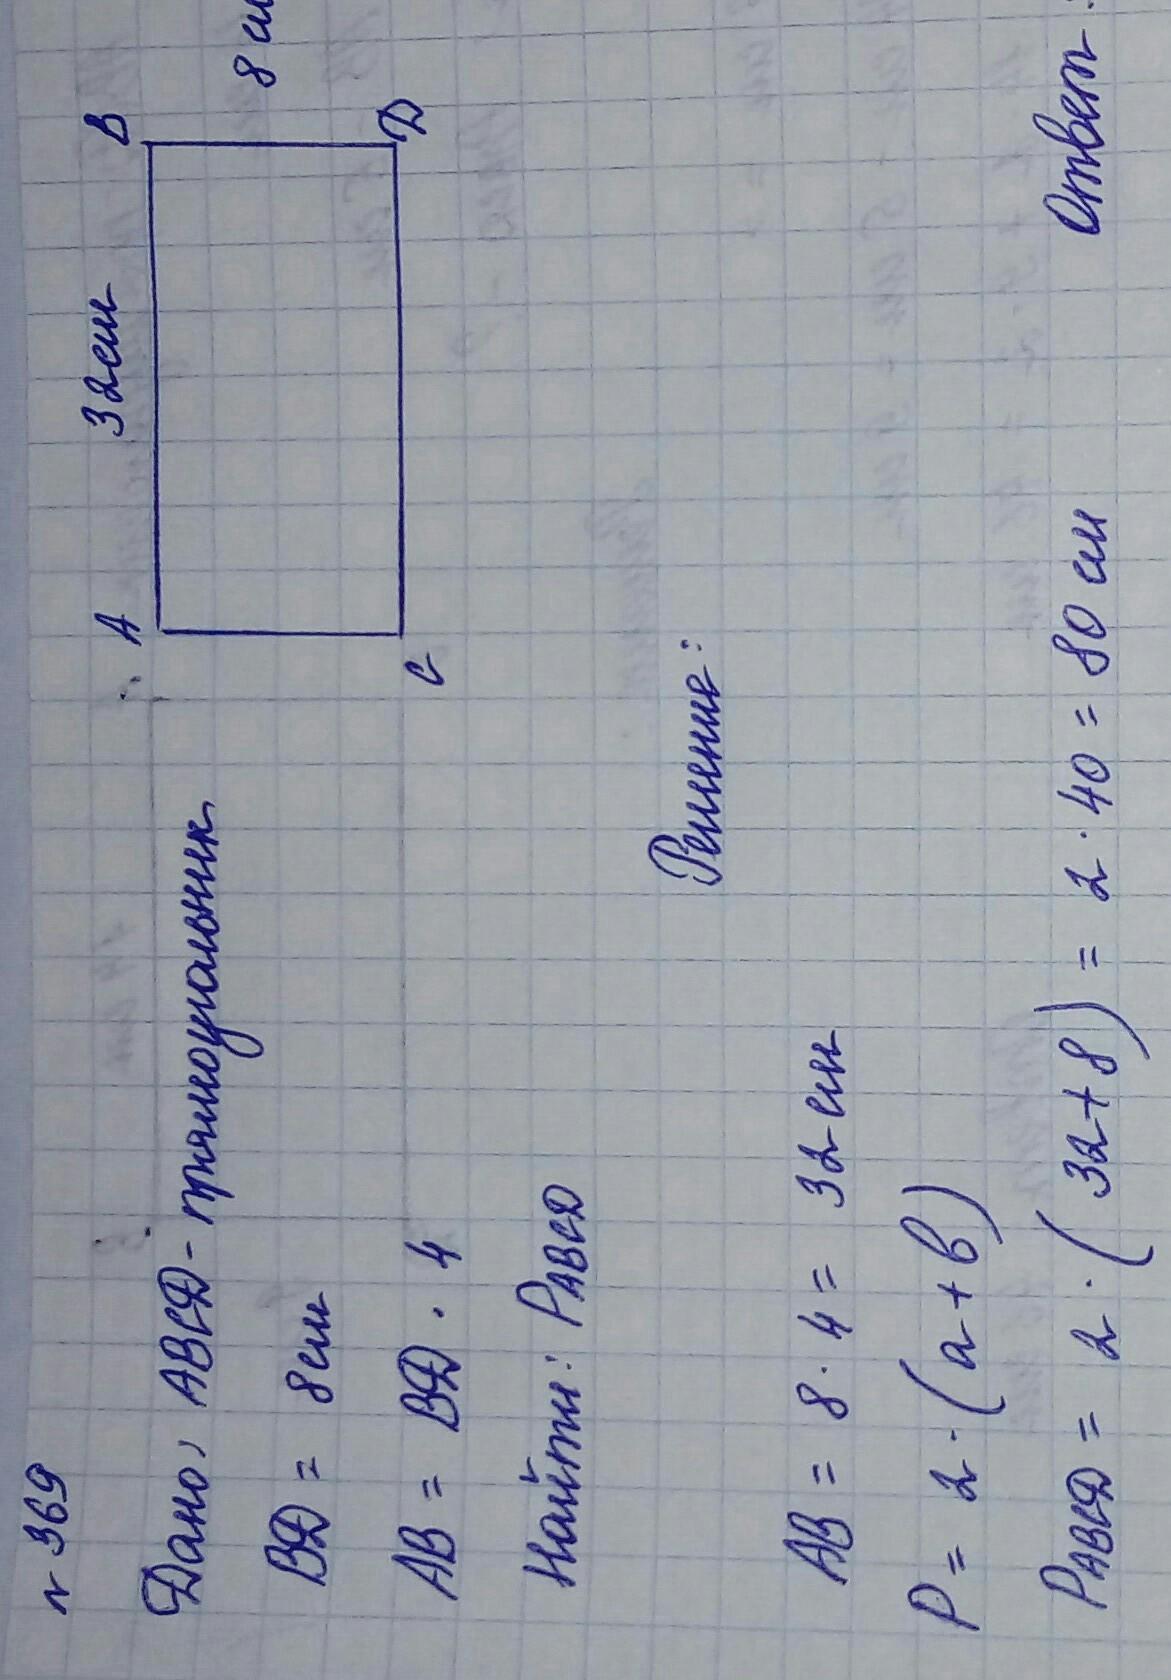 N 369
Дано: ABCD - прямоугольник
BD = 8см
AB = BD · 4
Найти: PABCD
A 32см B
8 см
C D
Решение:
AB = 8 · 4 = 32 см
P = 2 · (a + b)
PABCD = 2 · (32 + 8) = 2 · 40 = 80 см
Ответ: